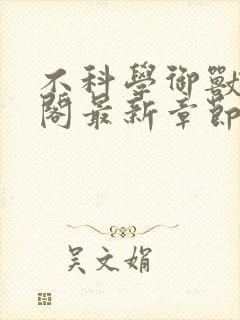 不科學御獸
閣最新章節
吴文娟